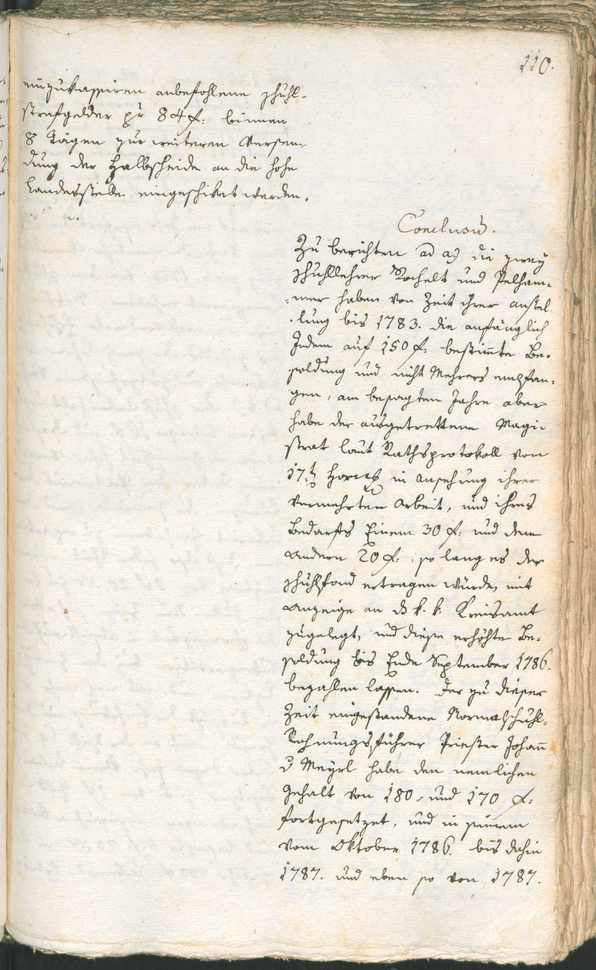 110.
einzukassiren anbefohlene schuhl-
strafgelder pr 84 f: binnen
8 Tägen zur weiteren Versen-
dung der Halbscheide an die hohe
Landesstelle eingeschikt werden.
Conclusum.
Zu berichten ad a) die zwey
schuhllehrer Rochelt und Pelham-
mer haben von Zeit ihrer anstel-
lung bis 1783. die anfänglich
Jedem auf 150 f: bestimte Be-
soldung und nicht Mehrers empfan-
gen, am besagten Jahre aber
habe der ausgetrettene Magi-
strat laut Rathsprotokoll von
17t in ansehung ihrer
vermehrten Arbeit, und ihres
Bedarfs Einem 30 f: und dem
andern 20 f: so lang es der
schuhlfond ertragen würde, mit
Anzeige an das k. k. Kreisamt
zugelegt, und diese erhöhte Be-
soldung bis Ende September 1786.
bezahlen lassen. Der zu dieser
Zeit eingestandene Normalschuhl-
Rechnungsführer Priester Johann
v Meyrl habe den nemlichen
Gehalt von 180 - und 170 f:
fortgesetzet, und in summa
vom Oktober 1786. bis dahin
1787. und eben so von 1787.